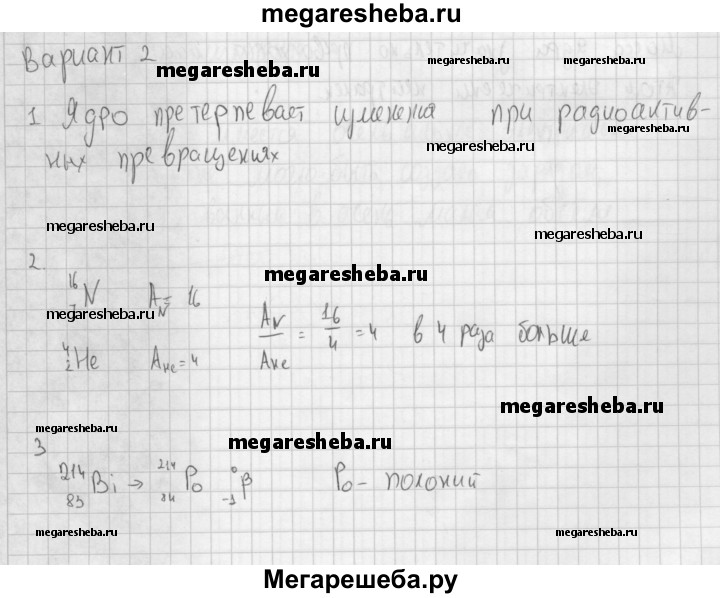 megaresheba.ru
Вариант 2
megaresheba.ru
megaresheba.ru
megaresheba.ru
1 Ядро претерпевает изменения при радиоактив-
megaresheba.ru
ных превращениях
megaresheba.ru
megaresheba.ru
megaresheba.ru
2.
megaresheba.ru
¹⁶₇N A_N = 16
megaresheba.ru
A_N/A_He = 16/4 = 4 в 4 раза больше
⁴₂He A_He = 4
megaresheba.ru
megaresheba.ru
megaresheba.ru
3
²¹⁴₈₃Bi → ²¹⁴₈₄Po ⁰₋₁β Po - полоний
megaresheba.ru
megaresheba.ru
megaresheba.ru
Мегарешеба.ру